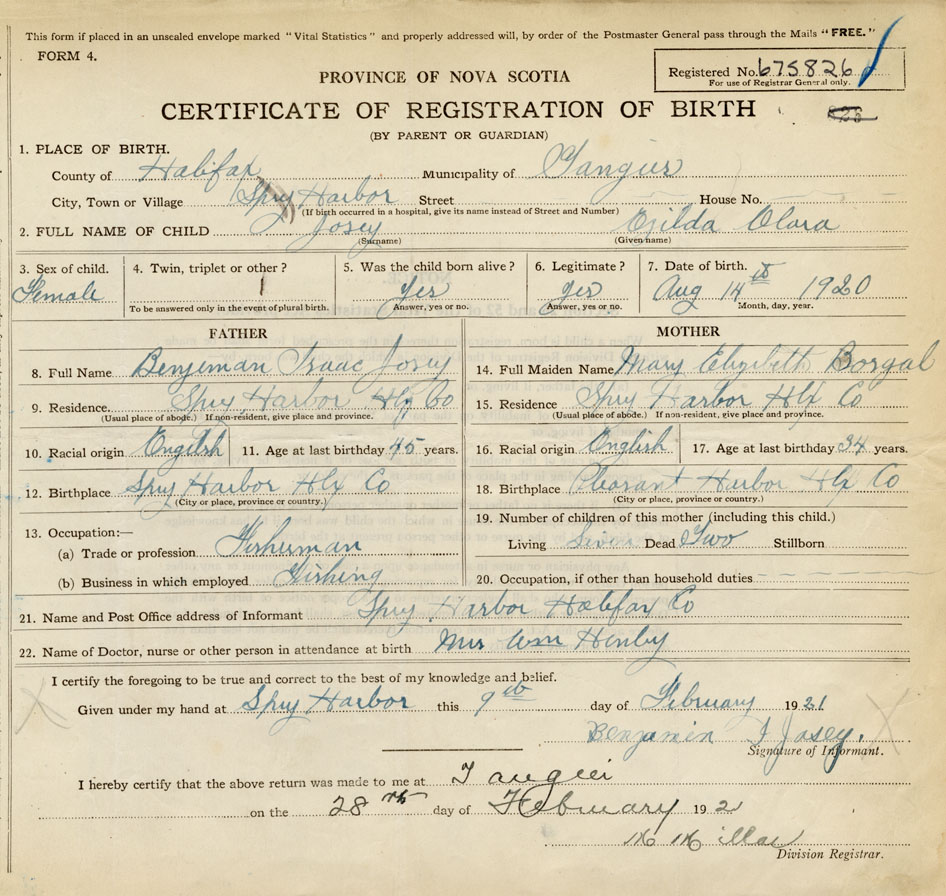 This form if placed in an unsealed envelope marked "Vital Statistics" and properly addressed will, by order of the Postmaster General pass through the Mails "FREE."
FORM 4.
Registered No. 675826
For use of Registrar General only.
PROVINCE OF NOVA SCOTIA
CERTIFICATE OF REGISTRATION OF BIRTH
(BY PARENT OR GUARDIAN)
1. PLACE OF BIRTH.
County of Halifax Municipality of Tangier
City, Town or Village Spry Harbor Street House No.
(If birth occurred in a hospital, give its name instead of Street and Number)
2. FULL NAME OF CHILD Josey Clara
(Surname) (Given name)
3. Sex of child. 4. Twin, triplet or other? 5. Was the child born alive? 6. Legitimate? 7. Date of birth.
Female 1 yes yes Aug 14th 1920
To be answered only in the event of plural birth. Answer, yes or no. Answer, yes or no. Month, day, year.
FATHER
8. Full Name Benjeman Isaac Josey
9. Residence Spry Harbor Hlx Co
(Usual place of abode.) If non-resident, give place and province.
10. Racial origin English 11. Age at last birthday 45 years.
12. Birthplace Spry Harbor Hlx Co
(City or place, province or country.)
13. Occupation:—
(a) Trade or profession Fisherman
(b) Business in which employed Fishing
MOTHER
14. Full Maiden Name Mary Elizibeth Borgal
15. Residence Spry Harbor Hlx Co
(Usual place of abode.) If non-resident, give place and province.
16. Racial origin English 17. Age at last birthday 34 years.
18. Birthplace Pleasant Harbor Hlx Co
(City or place, province or country.)
19. Number of children of this mother (including this child.)
Living Seven Dead Two Stillborn
20. Occupation, if other than household duties
21. Name and Post Office address of Informant Spry Harbor Halifax Co
22. Name of Doctor, nurse or other person in attendance at birth Mrs Wm Henby
I certify the foregoing to be true and correct to the best of my knowledge and belief.
Given under my hand at Spry Harbor this 9th day of February 1921
Benjamin I Josey.
Signature of Informant.
I hereby certify that the above return was made to me at Tangier
on the 28th day of February 192
Division Registrar.